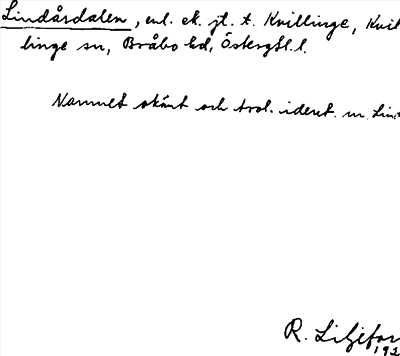 Lindårdalen, enl. ek. jl. t. Kvillinge, Kvil
linge sn, Bråbo hd, Östergtl. l.
Namnet okänt och trol. ident. m. Lin
R. Liljefor
192